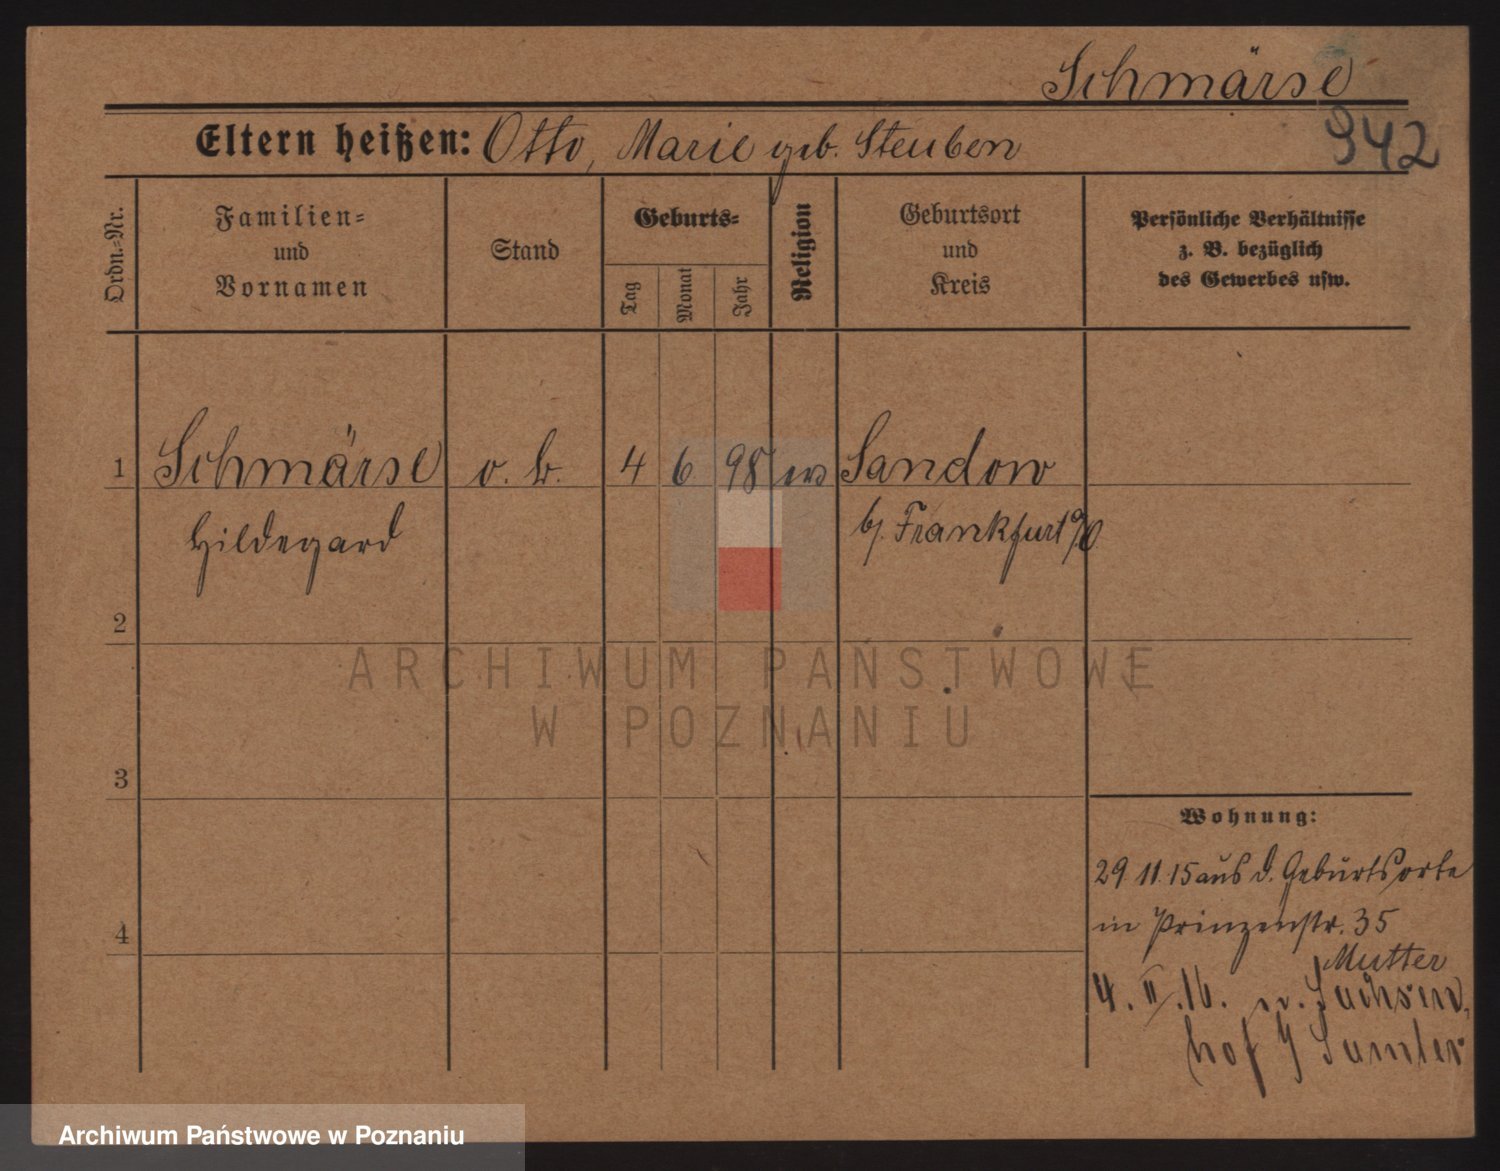 Schmärse
942
Eltern heißen: Otto, Marie geb. Steuben
Ordn.-Nr.
Familien-
und
Vornamen
Stand
Geburts-
Tag
Monat
Jahr
Religion
Geburtsort
und
Kreis
Persönliche Verhältnisse
z. B. bezüglich
des Gewerbes usw.
1 Schmärse o. b. 4 6 98 ev Sandow
Hildegard b/. Frankfurt a/O.
2
ARCHIWUM PAŃSTWOWE
W POZNANIU
3
Wohnung:
29 11. 15 aus d. Geburtsorte
in Prinzenstr. 35
Mutter
4
4. II. 16. n. Sachsen
hof
Archiwum Państwowe w Poznaniu